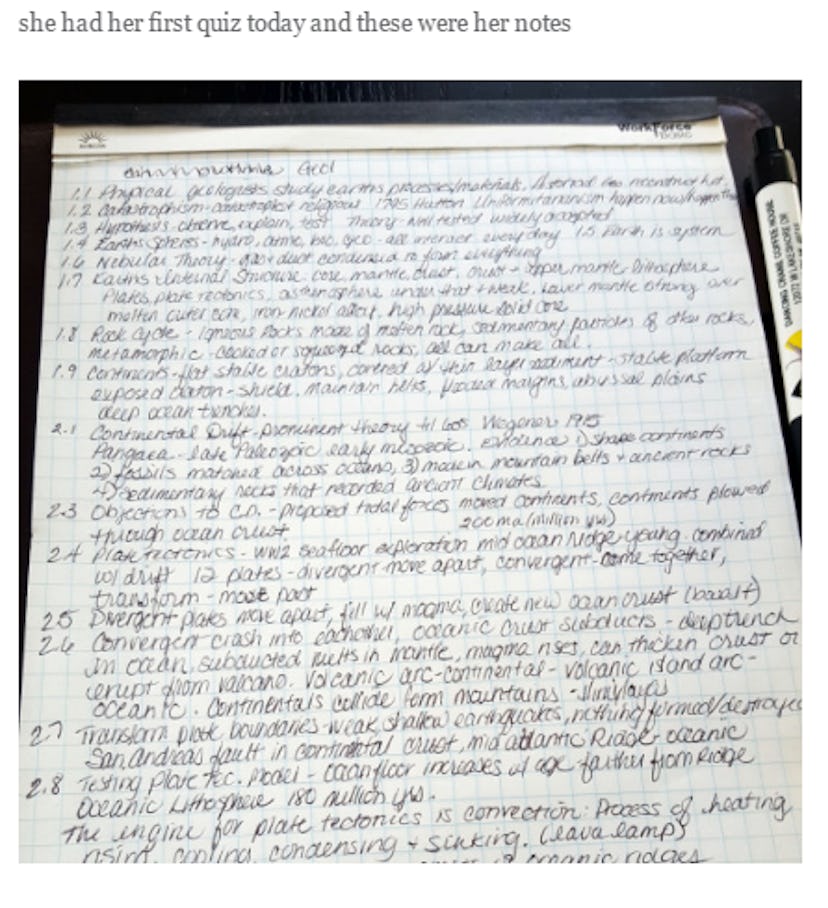 she had her first quiz today and these were her notes
WorkForce
Geol
1.1 Physical geologists study earths processes/materials,
1.2 Catastrophism - catastrophist religious 1795 Hutton Uniformitarianism happen now/happen then
1.3 Hypothesis - observe, explain, test Theory - well tested widely accepted
1.4 Earths Spheres - hydro, atmo, bio, geo - all interact every day 1.5 Earth is system
1.6 Nebular Theory - gas + dust condensed to form everything
1.7 Earths Internal Structure: core, mantle, crust, crust + upper mantle lithosphere
Plates, plate tectonics, asthenosphere under that + weak, lower mantle strong over
molten outer core, iron-nickel alloy, high pressure solid core
1.8 Rock Cycle - igneous rocks made of molten rock, sedimentary particles of other rocks,
metamorphic - cooked or squeezed rocks, all can make all.
1.9 Continents - flat stable cratons, covered w/ thin layer sediment - stable platform
exposed craton - shield, mountain belts, flooded margins, abyssal plains
deep ocean trenches.
2.1 Continental Drift - prominent theory til 60s Wegener 1915
Pangaea - late Paleozoic early mesozoic. evidence 1) shape continents
2) fossils matched across oceans, 3) modern mountain belts + ancient rocks
4) sedimentary rocks that recorded ancient climates.
2.3 Objections to C.D. - proposed tidal forces moved continents, continents plowed
through ocean crust. 200 ma (million yrs)
2.4 Plate tectonics - WW2 seafloor exploration mid ocean ridge young. combined
w/ drift 12 plates - divergent - move apart, convergent - come together,
transform - move past
2.5 Divergent plates move apart, fill w/ magma, create new ocean crust (basalt)
2.6 Convergent crash into eachother, oceanic crust subducts - deep trench
in ocean, subducted melts in mantle, magma rises, can thicken crust or
erupt from valcano. Volcanic arc-continental - volcanic island arc -
oceanic. Continentals collide form mountains - Himilayas
2.7 Transform plate boundaries - weak, shallow earthquakes, nothing formed/destroyed
San andreas fault in continental crust, mid atlantic Ridge - oceanic
2.8 Testing Plate Tec. Model - Ocean floor increases w/ age farther from Ridge
Oceanic Lithosphere 180 million yrs.
The engine for plate tectonics is convection: Process of heating
rising, cooling, condensing + sinking. (lava lamp)
ridges